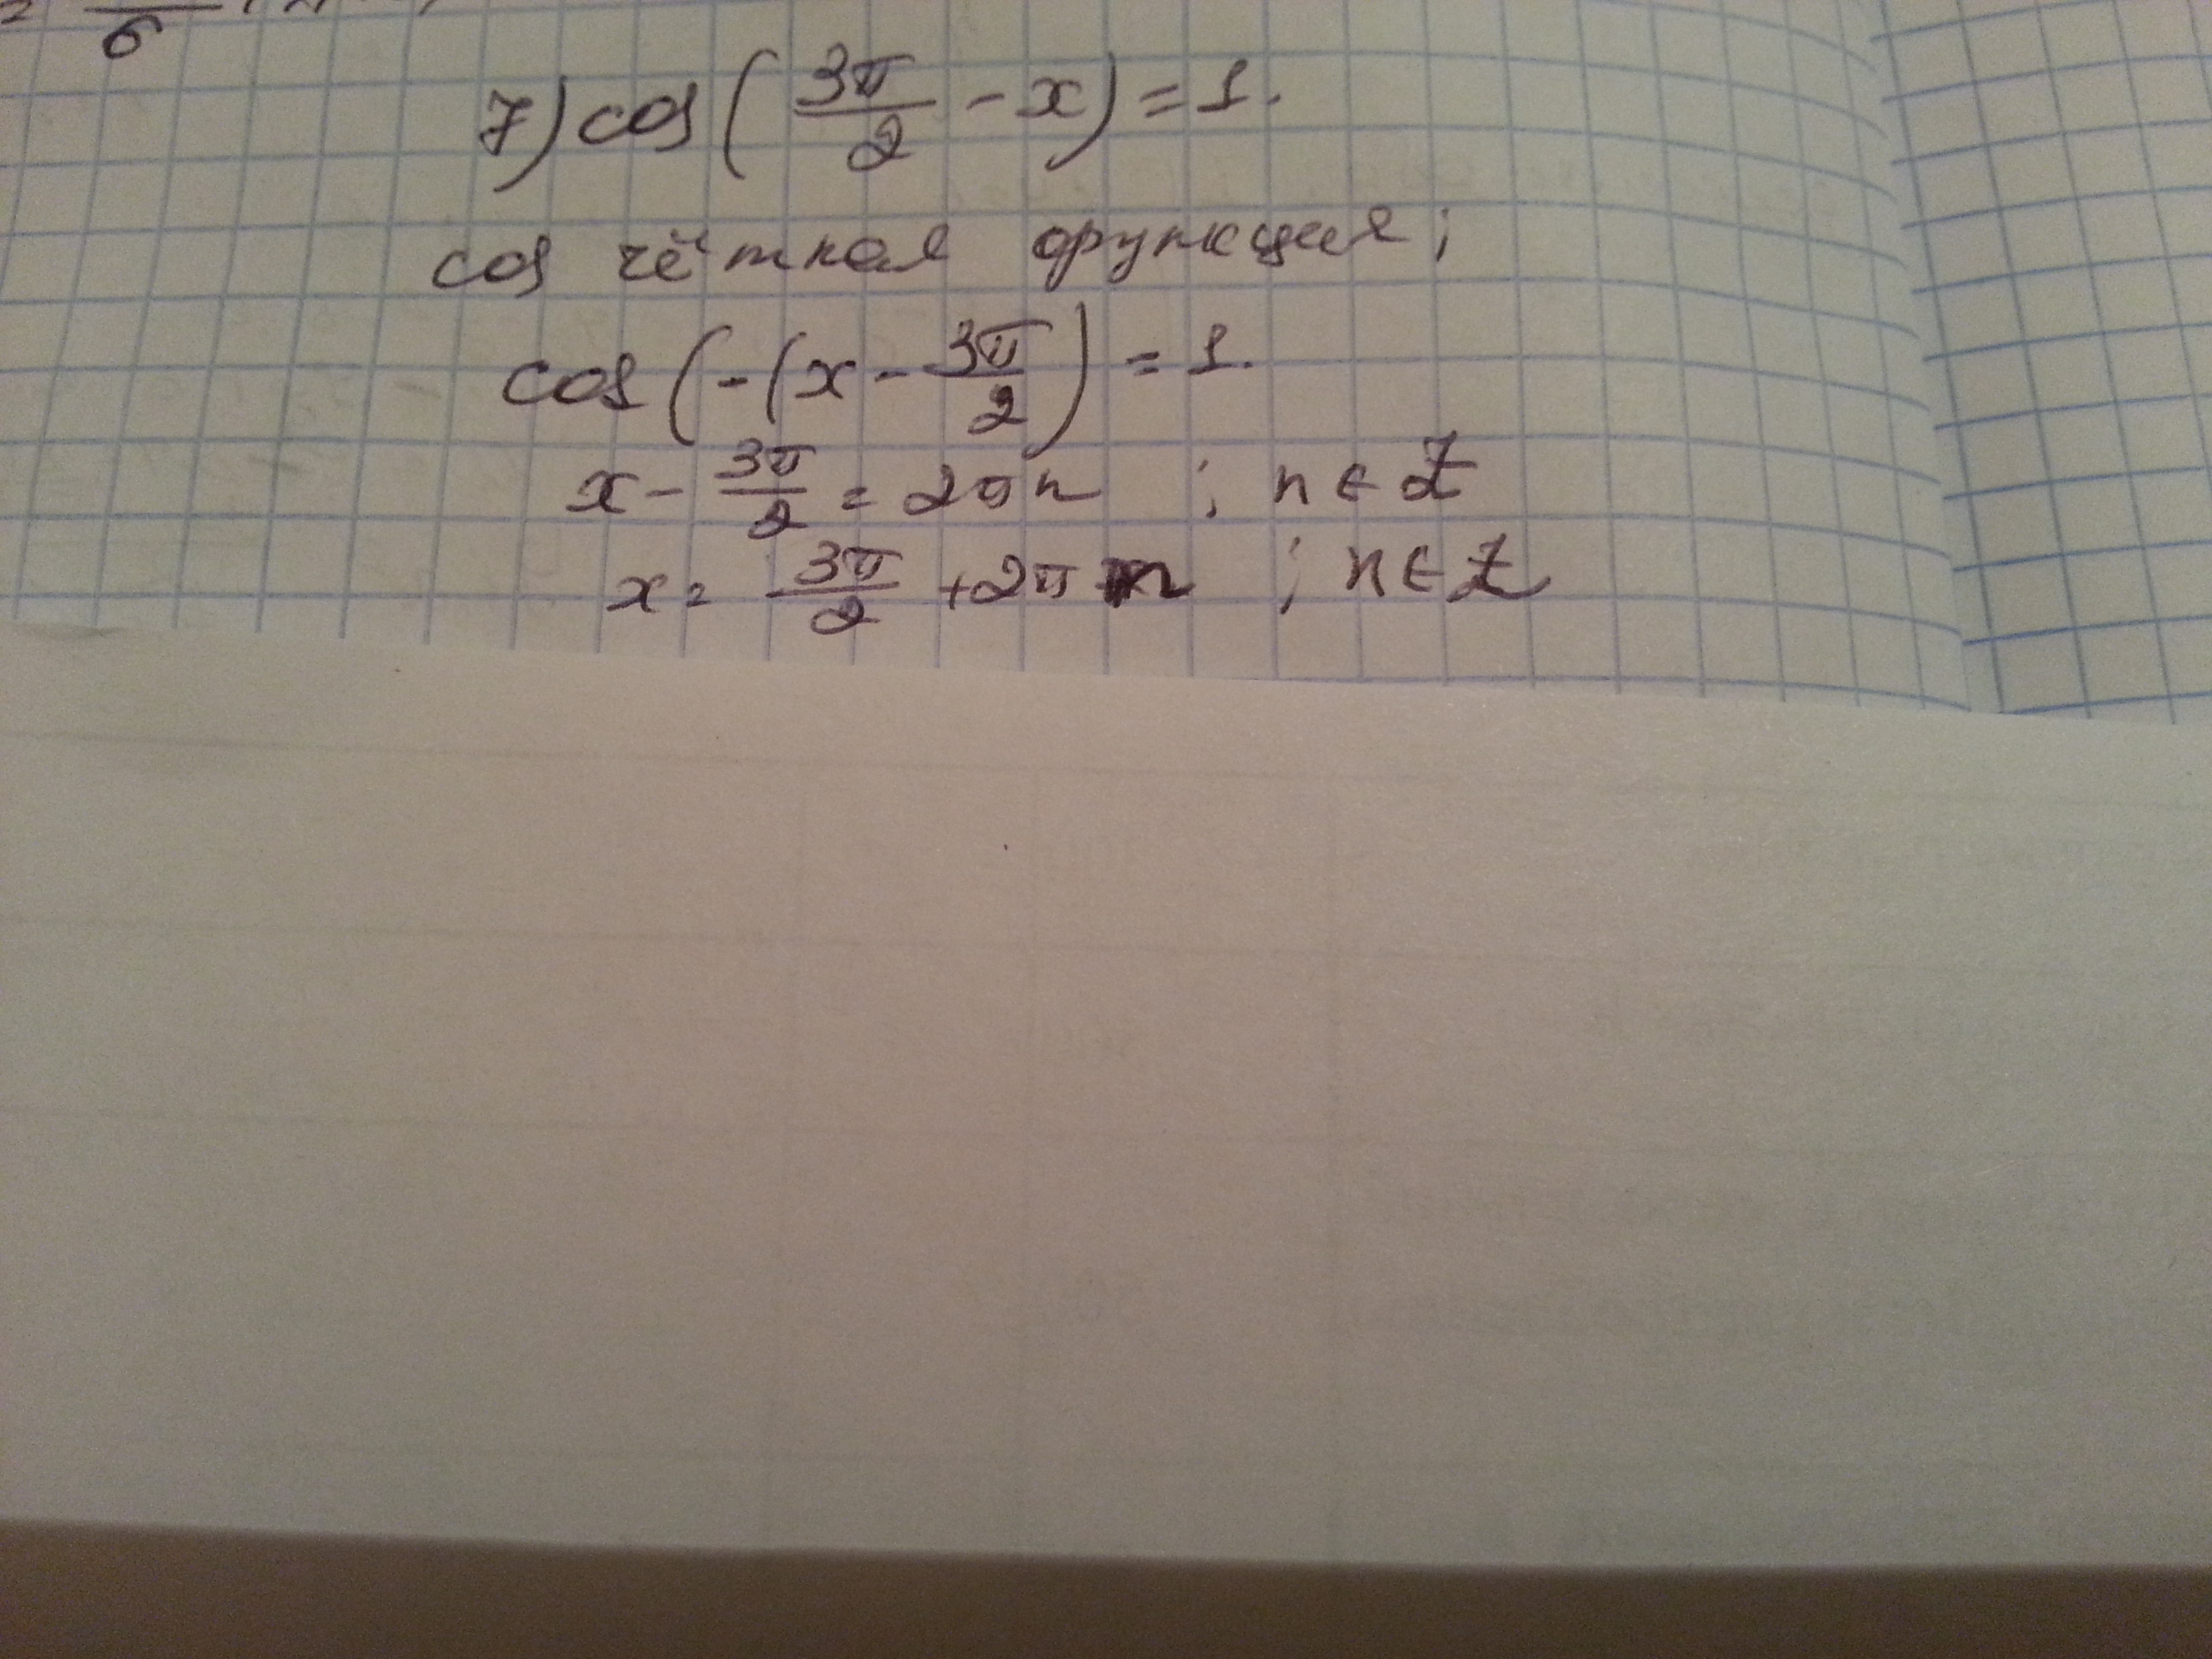 6
7) cos(3π/2 - x) = 1.
cos чётная функция;
cos(-(x - 3π/2) = 1.
x - 3π/2 = 2πn ; n ∈ Z
x = 3π/2 + 2πn ; n ∈ Z